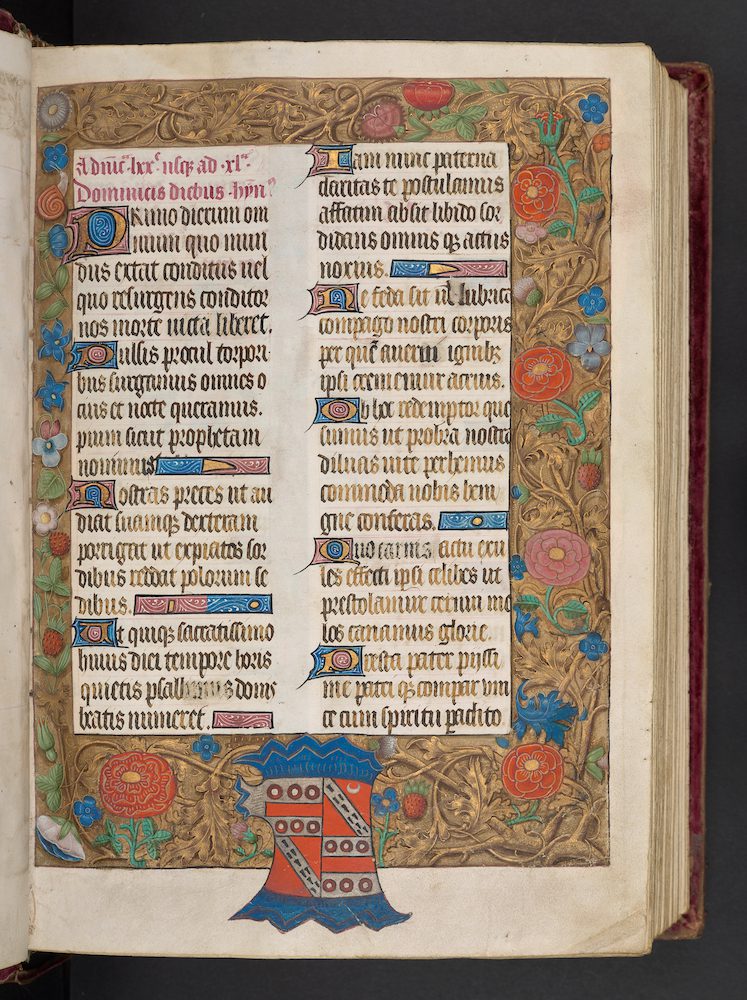 A dnicͣ lxxͤ usqꝫ ad xlͫ
Dominicis diebus hynꝰ
PRimo dierum om
nium quo mun
dus extat conditus uel
quo resurgens conditor
nos morte uicta liberet.
Pulsis procul torpori
bus surgamus omnes o
cius et nocte queramus.
pium sicut prophetam
nouimus
Nostras preces ut au
diat suamqꝫ dexteram
porrigat ut expiatos sor
dibus reddat polorum se
dibus.
Ut quiqꝫ sacratissimo
huius diei tempore horis
quietis psallimus donis
beatis muneret.
Iam nunc paterna
claritas te postulamus
affatim absit libido sor
didans omnis qꝫ actus
noxius.
Ne feda sit ul lubrica
compago nostri corporis
per quē auerni ignibꝫ
ipsi crememur acrius.
Ob hec redemptor que
sumus ut probra nostra
diluas uite perhennis
commoda nobis beni
gne conferas.
Quo carnis actu exu
les effecti ipsi celibes ut
prestolamur cernui me
los canamus glorie.
Presta pater pijssi
me patri qꝫ compar vni
ce cum spiritu paclito